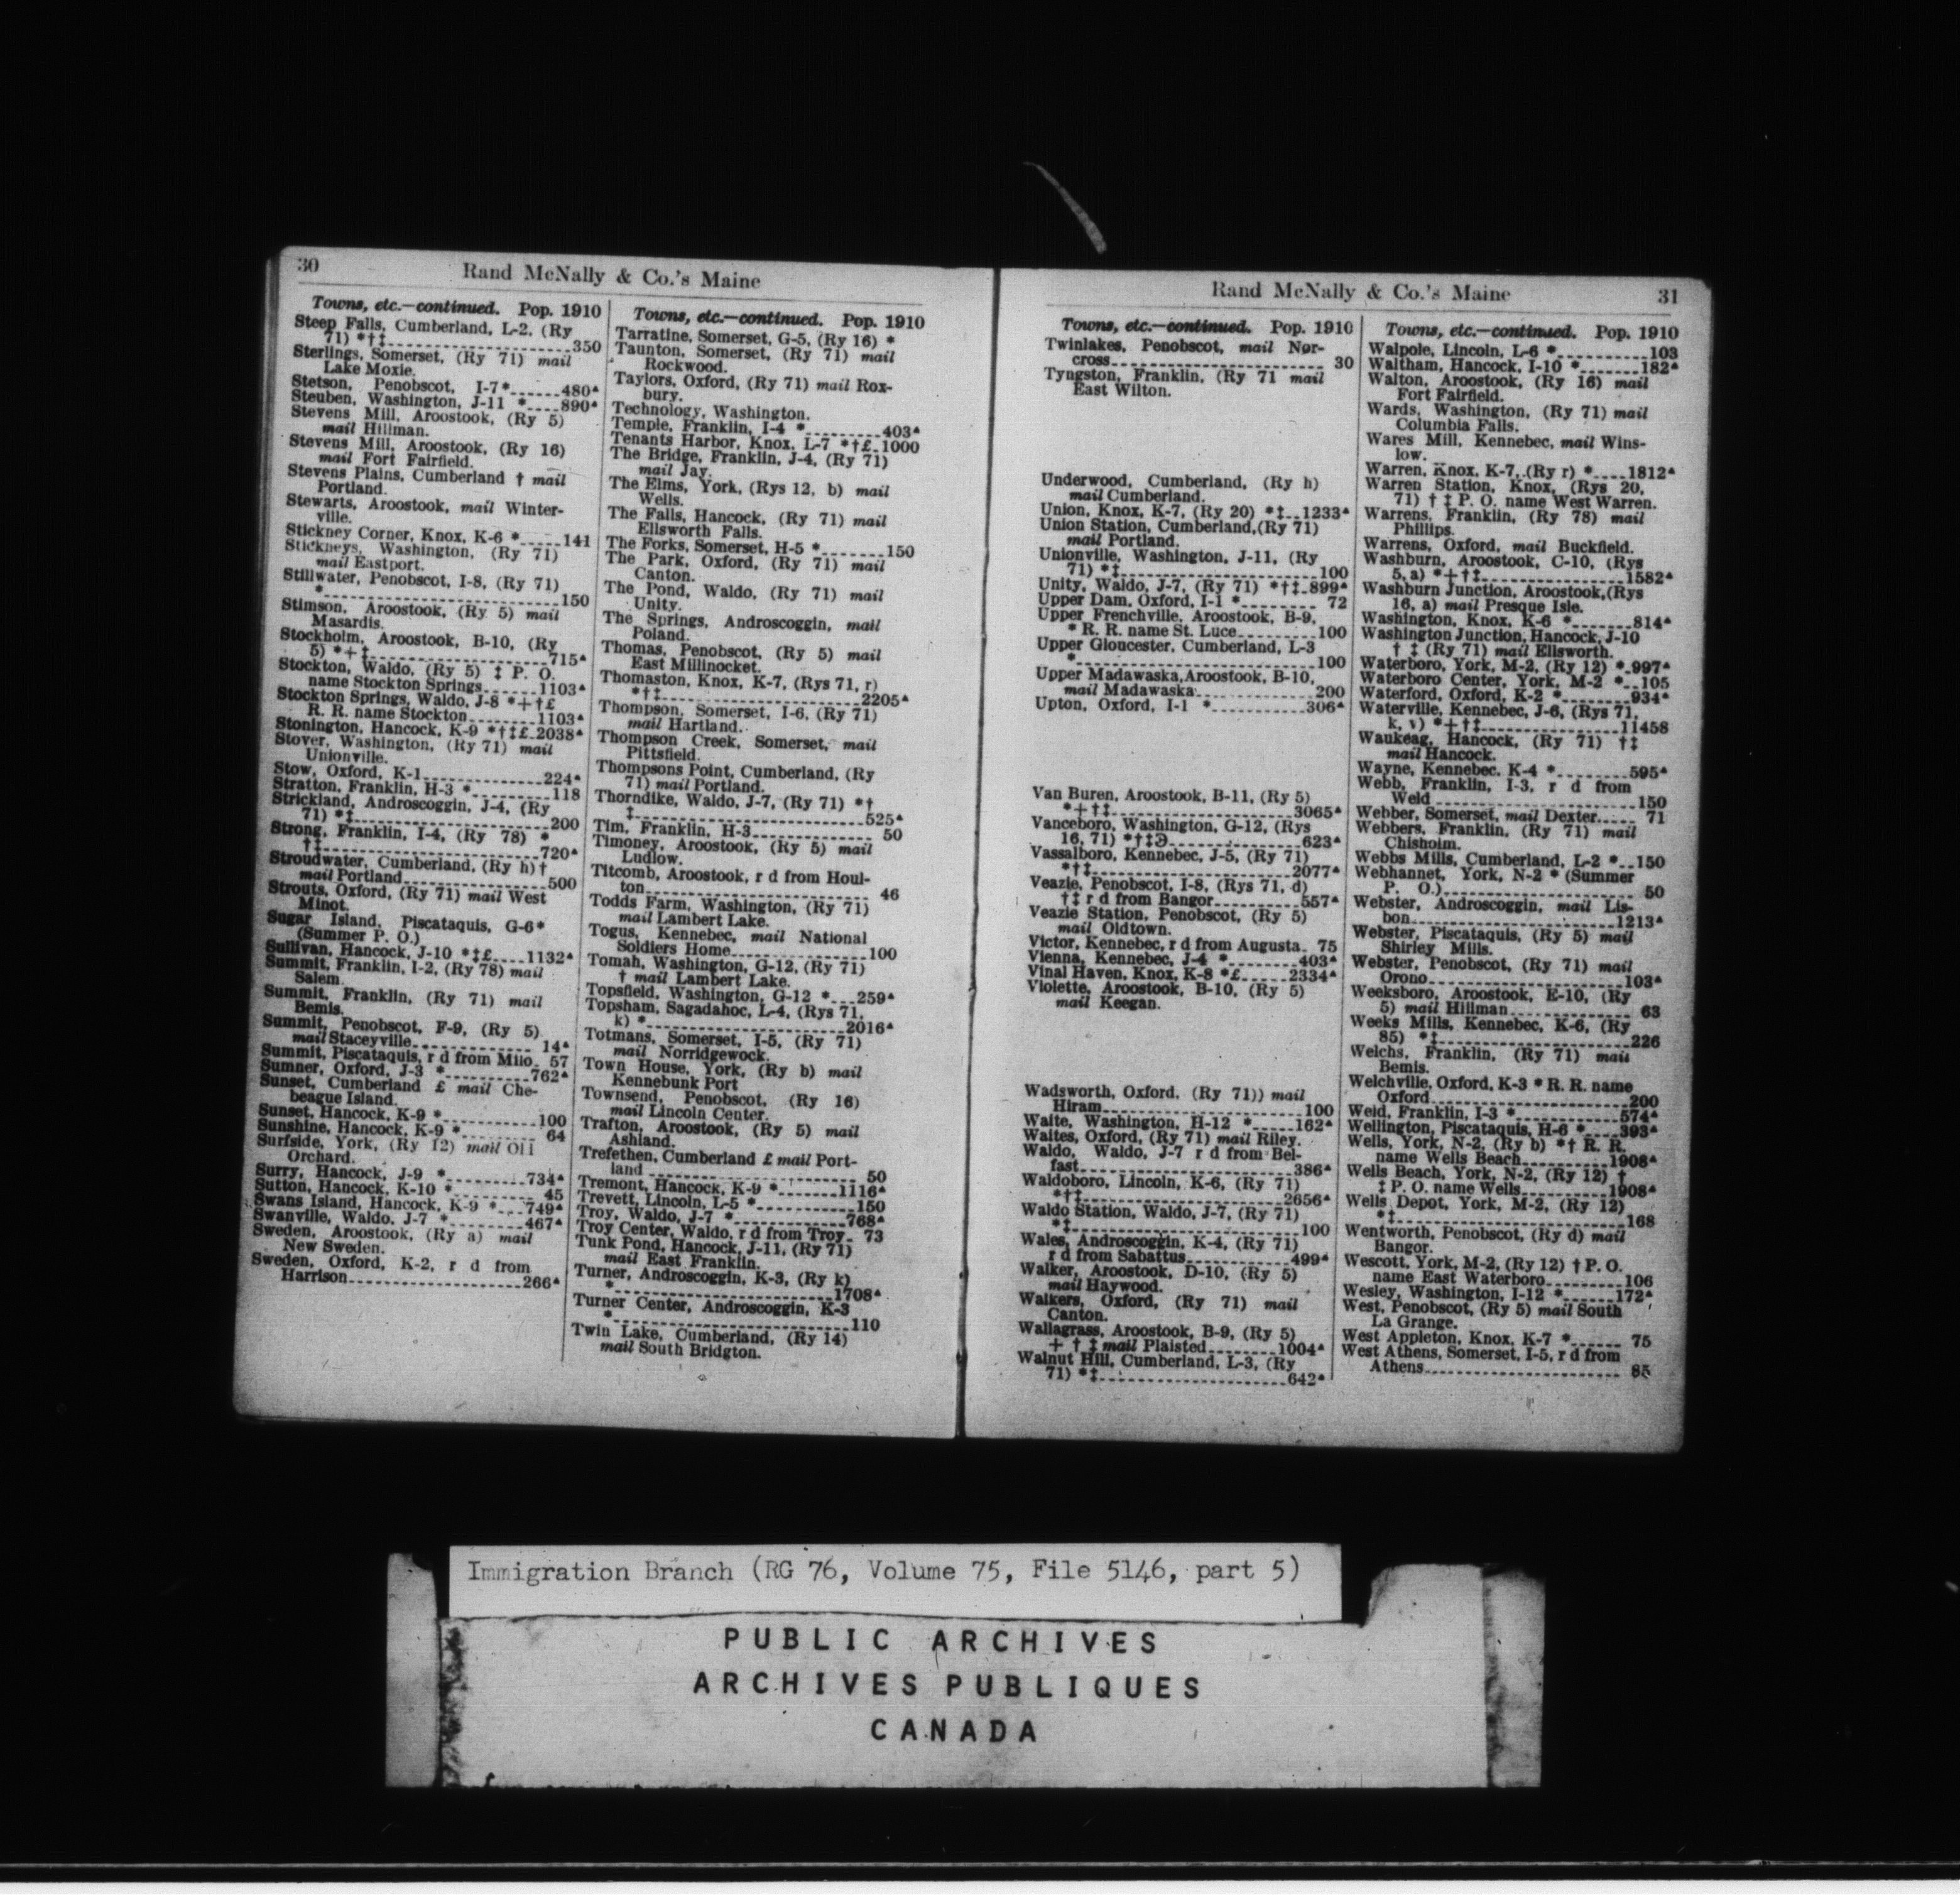 30
Rand McNally & Co.'s Maine
Towns, etc.—continued. Pop. 1910
Steep Falls, Cumberland, L-2, (Ry
71) *†‡ 350
Sterlings, Somerset, (Ry 71) mail
Lake Moxie.
Stetson, Penobscot, I-7* 480▲
Steuben, Washington, J-11 * 890▲
Stevens Mill, Aroostook, (Ry 5)
mail Hillman.
Stevens Mill, Aroostook, (Ry 16)
mail Fort Fairfield.
Stevens Plains, Cumberland † mail
Portland.
Stewarts, Aroostook, mail Winter-
ville.
Stickney Corner, Knox, K-6 * 141
Stickneys, Washington, (Ry 71)
mail Eastport.
Stillwater, Penobscot, I-8, (Ry 71)
* 150
Stimson, Aroostook, (Ry 5) mail
Masardis.
Stockholm, Aroostook, B-10, (Ry
5) *+‡ 715▲
Stockton, Waldo, (Ry 5) ‡ P. O.
name Stockton Springs 1103▲
Stockton Springs, Waldo, J-8 *+†£
R. R. name Stockton 1103▲
Stonington, Hancock, K-9 *†‡£ 2038▲
Stover, Washington, (Ry 71) mail
Unionville.
Stow, Oxford, K-1 224▲
Stratton, Franklin, H-3 * 118
Strickland, Androscoggin, J-4, (Ry
71) *‡ 200
Strong, Franklin, I-4, (Ry 78) *
†‡ 720▲
Stroudwater, Cumberland, (Ry h) †
mail Portland 500
Strouts, Oxford, (Ry 71) mail West
Minot.
Sugar Island, Piscataquis, G-6*
(Summer P. O.)
Sullivan, Hancock, J-10 *‡£ 1132▲
Summit, Franklin, I-2, (Ry 78) mail
Salem.
Summit, Franklin, (Ry 71) mail
Bemis.
Summit, Penobscot, F-9, (Ry 5)
mail Staceyville 14▲
Summit, Piscataquis, r d from Milo 57
Sumner, Oxford, J-3 * 762▲
Sunset, Cumberland £ mail Che-
beague Island.
Sunset, Hancock, K-9 * 100
Sunshine, Hancock, K-9 * 64
Surfside, York, (Ry 12) mail Old
Orchard.
Surry, Hancock, J-9 * 734▲
Sutton, Hancock, K-10 * 45
Swans Island, Hancock, K-9 * 749▲
Swanville, Waldo, J-7 * 467▲
Sweden, Aroostook, (Ry a) mail
New Sweden.
Sweden, Oxford, K-2, r d from
Harrison 266▲
Towns, etc.—continued. Pop. 1910
Tarratine, Somerset, G-5, (Ry 16) *
Taunton, Somerset, (Ry 71) mail
Rockwood.
Taylors, Oxford, (Ry 71) mail Rox-
bury.
Technology, Washington.
Temple, Franklin, I-4 * 403▲
Tenants Harbor, Knox, L-7 *†£ 1000
The Bridge, Franklin, J-4, (Ry 71)
mail Jay.
The Elms, York, (Rys 12, b) mail
Wells.
The Falls, Hancock, (Ry 71) mail
Ellsworth Falls.
The Forks, Somerset, H-5 * 150
The Park, Oxford, (Ry 71) mail
Canton.
The Pond, Waldo, (Ry 71) mail
Unity.
The Springs, Androscoggin, mail
Poland.
Thomas, Penobscot, (Ry 5) mail
East Millinocket.
Thomaston, Knox, K-7, (Rys 71, r)
*†‡ 2205▲
Thompson, Somerset, I-6, (Ry 71)
mail Hartland.
Thompson Creek, Somerset, mail
Pittsfield.
Thompsons Point, Cumberland, (Ry
71) mail Portland.
Thorndike, Waldo, J-7, (Ry 71) *†
‡ 525▲
Tim, Franklin, H-3 50
Timoney, Aroostook, (Ry 5) mail
Ludlow.
Titcomb, Aroostook, r d from Houl-
ton 46
Todds Farm, Washington, (Ry 71)
mail Lambert Lake.
Togus, Kennebec, mail National
Soldiers Home 100
Tomah, Washington, G-12, (Ry 71)
† mail Lambert Lake.
Topsfield, Washington, G-12 * 259▲
Topsham, Sagadahoc, L-4, (Rys 71,
k) * 2016▲
Totmans, Somerset, I-5, (Ry 71)
mail Norridgewock.
Town House, York, (Ry b) mail
Kennebunk Port
Townsend, Penobscot, (Ry 16)
mail Lincoln Center.
Trafton, Aroostook, (Ry 5) mail
Ashland.
Trefethen, Cumberland £ mail Port-
land 50
Tremont, Hancock, K-9 * 1116▲
Trevett, Lincoln, L-5 * 150
Troy, Waldo, J-7 * 768▲
Troy Center, Waldo, r d from Troy 73
Tunk Pond, Hancock, J-11, (Ry 71)
mail East Franklin.
Turner, Androscoggin, K-3, (Ry k)
* 1708▲
Turner Center, Androscoggin, K-3
* 110
Twin Lake, Cumberland, (Ry 14)
mail South Bridgton.
Rand McNally & Co.'s Maine
31
Towns, etc.—continued. Pop. 1910
Twinlakes, Penobscot, mail Nor-
cross 30
Tyngston, Franklin, (Ry 71 mail
East Wilton.
Underwood, Cumberland, (Ry h)
mail Cumberland.
Union, Knox, K-7, (Ry 20) *‡ 1233▲
Union Station, Cumberland,(Ry 71)
mail Portland.
Unionville, Washington, J-11, (Ry
71) *‡ 100
Unity, Waldo, J-7, (Ry 71) *†‡ 899▲
Upper Dam, Oxford, I-1 * 72
Upper Frenchville, Aroostook, B-9,
* R. R. name St. Luce 100
Upper Gloucester, Cumberland, L-3
* 100
Upper Madawaska,Aroostook, B-10,
mail Madawaska 200
Upton, Oxford, I-1 * 306▲
Van Buren, Aroostook, B-11, (Ry 5)
*+†‡ 3065▲
Vanceboro, Washington, G-12, (Rys
16, 71) *†‡ 623▲
Vassalboro, Kennebec, J-5, (Ry 71)
*†‡ 2077▲
Veazie, Penobscot, I-8, (Rys 71, d)
†‡ r d from Bangor 557▲
Veazie Station, Penobscot, (Ry 5)
mail Oldtown.
Victor, Kennebec, r d from Augusta 75
Vienna, Kennebec, J-4 * 403▲
Vinal Haven, Knox, K-8 *£ 2334▲
Violette, Aroostook, B-10, (Ry 5)
mail Keegan.
Wadsworth, Oxford, (Ry 71)) mail
Hiram 100
Waite, Washington, H-12 * 162▲
Waites, Oxford, (Ry 71) mail Riley.
Waldo, Waldo, J-7 r d from Bel-
fast 386▲
Waldoboro, Lincoln, K-6, (Ry 71)
*†‡ 2656▲
Waldo Station, Waldo, J-7, (Ry 71)
*‡ 100
Wales, Androscoggin, K-4, (Ry 71)
r d from Sabattus 499▲
Walker, Aroostook, D-10, (Ry 5)
mail Haywood.
Walkers, Oxford, (Ry 71) mail
Canton.
Wallagrass, Aroostook, B-9, (Ry 5)
+ † ‡ mail Plaisted 1004▲
Walnut Hill, Cumberland, L-3, (Ry
71) *‡ 642▲
Towns, etc.—continued. Pop. 1910
Walpole, Lincoln, L-6 * 103
Waltham, Hancock, I-10 * 182▲
Walton, Aroostook, (Ry 16) mail
Fort Fairfield.
Wards, Washington, (Ry 71) mail
Columbia Falls.
Wares Mill, Kennebec, mail Wins-
low.
Warren, Knox, K-7, (Ry r) * 1812▲
Warren Station, Knox, (Rys 20,
71) † ‡ P. O. name West Warren.
Warrens, Franklin, (Ry 78) mail
Phillips.
Warrens, Oxford, mail Buckfield.
Washburn, Aroostook, C-10, (Rys
5, a) *+†‡ 1582▲
Washburn Junction, Aroostook,(Rys
16, a) mail Presque Isle.
Washington, Knox, K-6 * 814▲
Washington Junction, Hancock, J-10
† ‡ (Ry 71) mail Ellsworth.
Waterboro, York, M-2, (Ry 12) * 997▲
Waterboro Center, York, M-2 * 105
Waterford, Oxford, K-2 * 934▲
Waterville, Kennebec, J-6, (Rys 71,
k, v) *+†‡ 11458
Waukeag, Hancock, (Ry 71) †‡
mail Hancock.
Wayne, Kennebec, K-4 * 595▲
Webb, Franklin, I-3, r d from
Weld 150
Webber, Somerset, mail Dexter 71
Webbers, Franklin, (Ry 71) mail
Chisholm.
Webbs Mills, Cumberland, L-2 * 150
Webhannet, York, N-2 * (Summer
P. O.) 50
Webster, Androscoggin, mail Lis-
bon 1213▲
Webster, Piscataquis, (Ry 5) mail
Shirley Mills.
Webster, Penobscot, (Ry 71) mail
Orono 103▲
Weeksboro, Aroostook, E-10, (Ry
5) mail Hillman 63
Weeks Mills, Kennebec, K-6, (Ry
85) *‡ 226
Welchs, Franklin, (Ry 71) mail
Bemis.
Welchville, Oxford, K-3 * R. R. name
Oxford 200
Weld, Franklin, I-3 * 574▲
Wellington, Piscataquis, H-6 * 393▲
Wells, York, N-2, (Ry b) *† R. R.
name Wells Beach 1908▲
Wells Beach, York, N-2, (Ry 12) †
‡ P. O. name Wells 1908▲
Wells Depot, York, M-2, (Ry 12)
*‡ 168
Wentworth, Penobscot, (Ry d) mail
Bangor.
Wescott, York, M-2, (Ry 12) † P. O.
name East Waterboro 106
Wesley, Washington, I-12 * 172▲
West, Penobscot, (Ry 5) mail South
La Grange.
West Appleton, Knox, K-7 * 75
West Athens, Somerset, I-5, r d from
Athens 85
Immigration Branch (RG 76, Volume 75, File 5146, part 5)
PUBLIC ARCHIVES
ARCHIVES PUBLIQUES
CANADA